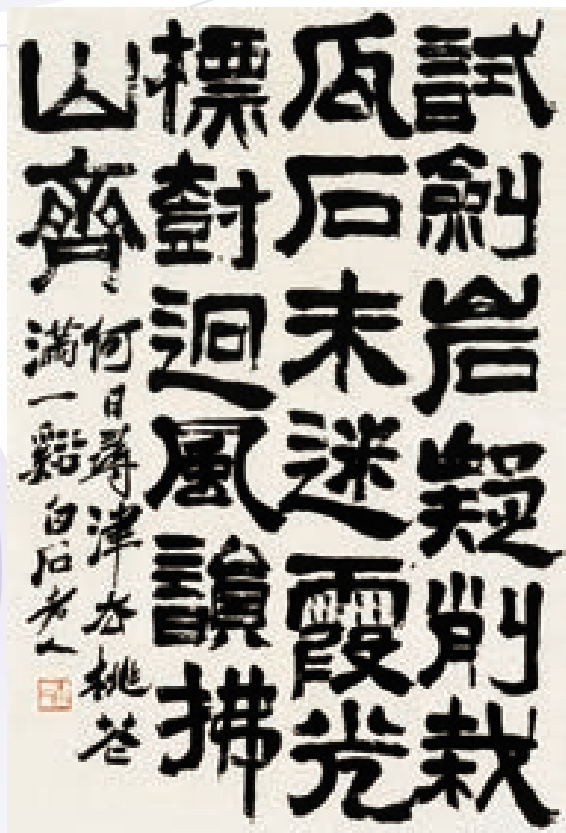 試劍岩疑削栽
瓜石未迷霞光
標尌迴風韻拂
山齊
何日尋津去桃花
滿一谿白石老人